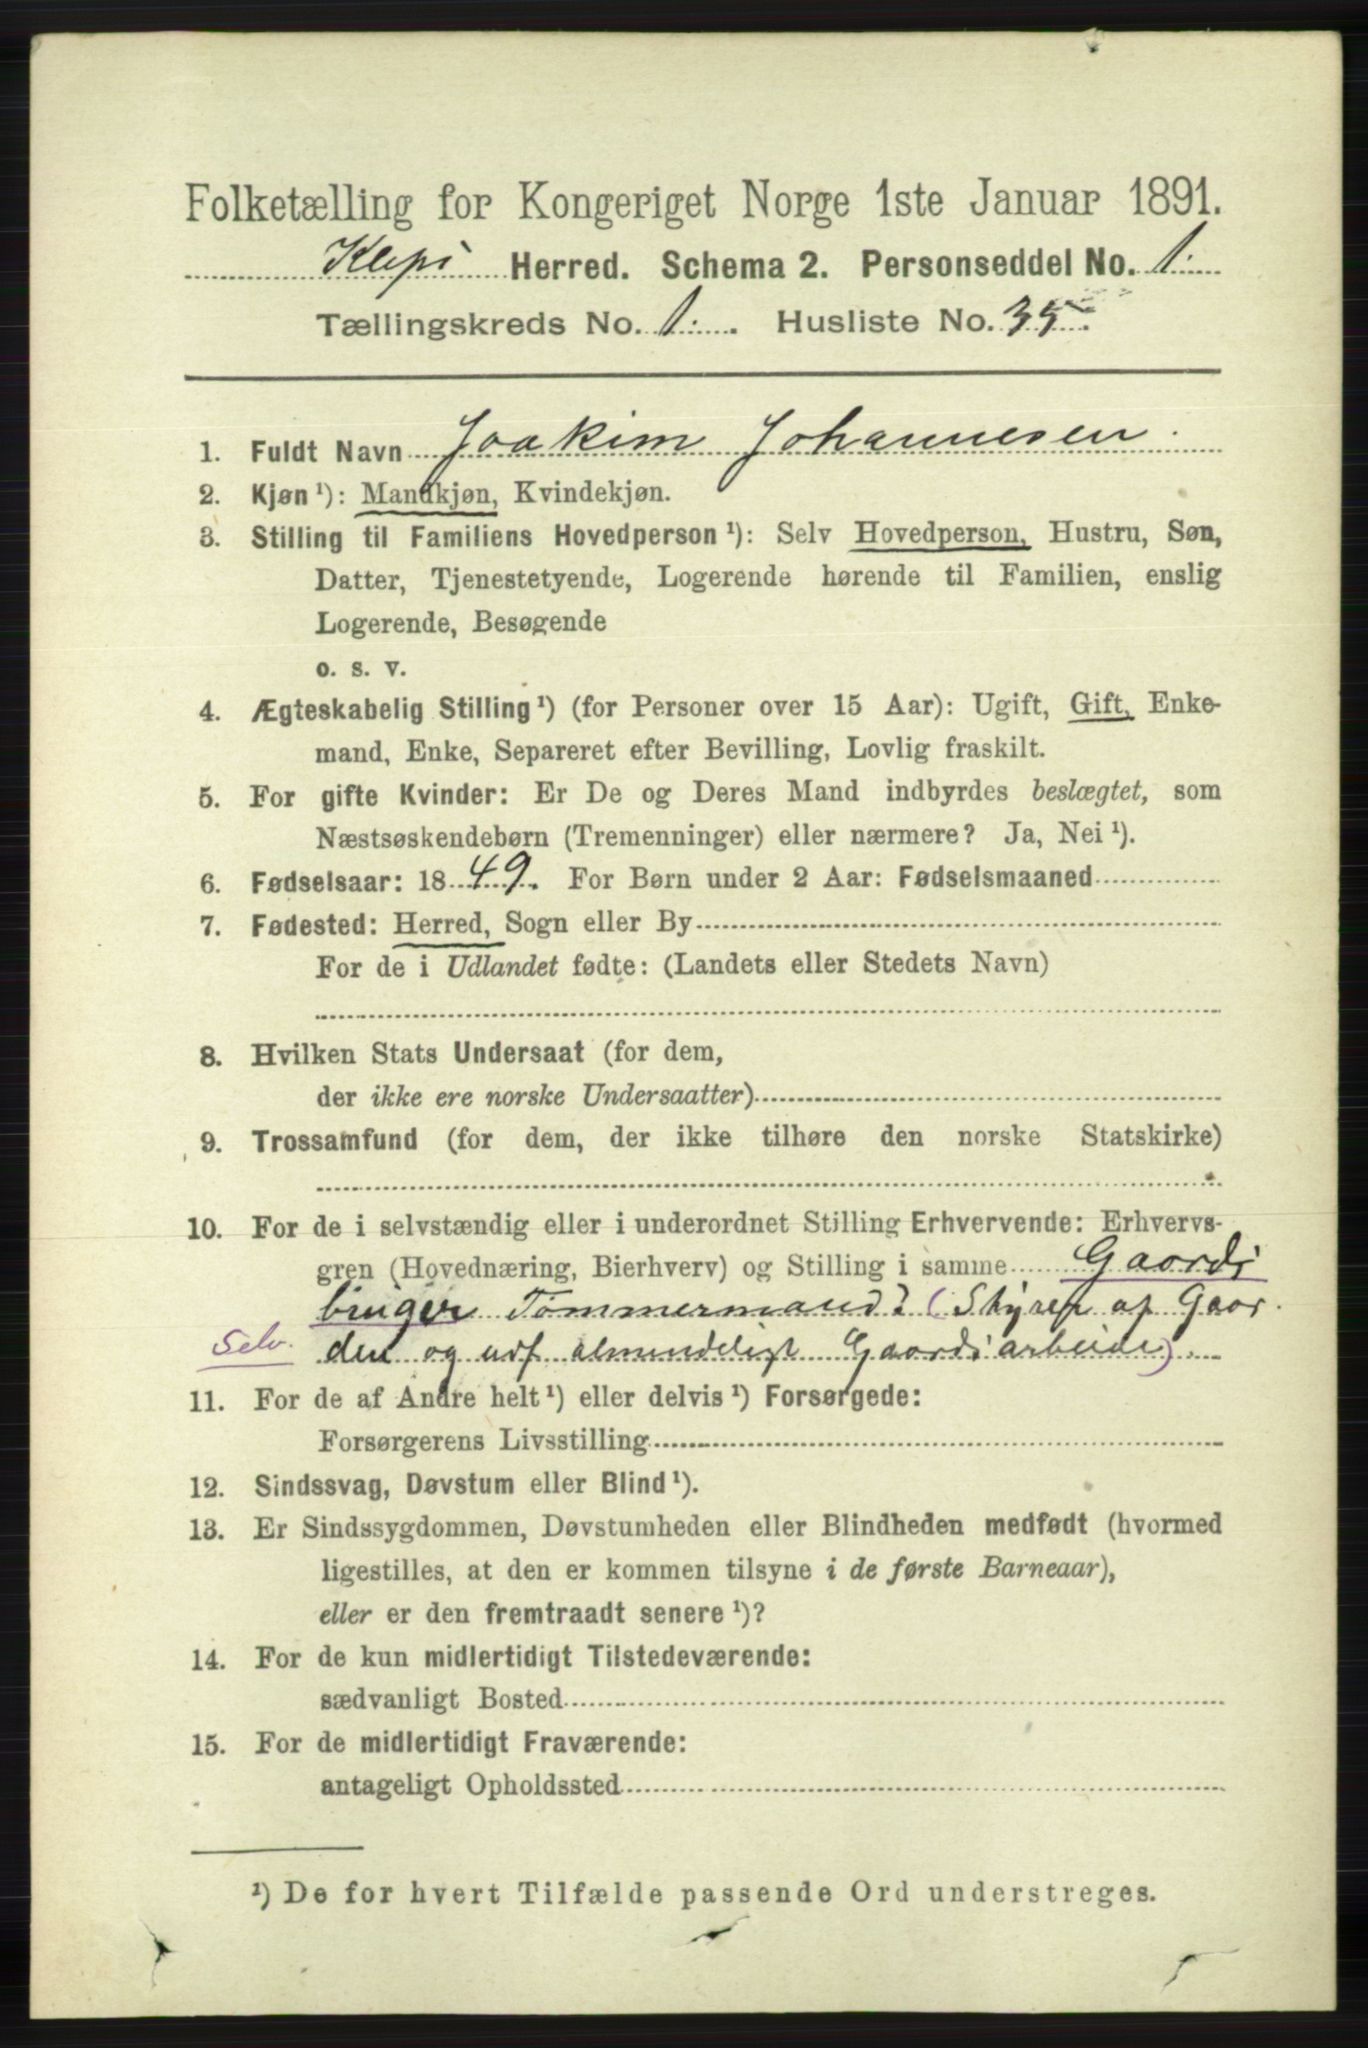 Folketælling for Kongeriget Norge 1ste Januar 1891.
Klepi Herred. Schema 2. Personseddel No. 1.
Tællingskreds No. 1. Husliste No. 35.
1. Fuldt Navn Joakim Johannesen.
2. Kjøn ¹): Mandkjøn, Kvindekjøn.
3. Stilling til Familiens Hovedperson ¹): Selv Hovedperson, Hustru, Søn,
Datter, Tjenestetyende, Logerende hørende til Familien, enslig
Logerende, Besøgende
o. s. v.
4. Ægteskabelig Stilling ¹) (for Personer over 15 Aar): Ugift, Gift, Enke-
mand, Enke, Separeret efter Bevilling, Lovlig fraskilt.
5. For gifte Kvinder: Er De og Deres Mand indbyrdes beslægtet, som
Næstsøskendebørn (Tremenninger) eller nærmere? Ja, Nei ¹).
6. Fødselsaar: 1849. For Børn under 2 Aar: Fødselsmaaned
7. Fødested: Herred, Sogn eller By
For de i Udlandet fødte: (Landets eller Stedets Navn)
8. Hvilken Stats Undersaat (for dem,
der ikke ere norske Undersaatter)
9. Trossamfund (for dem, der ikke tilhøre den norske Statskirke)
10. For de i selvstændig eller i underordnet Stilling Erhvervende: Erhvervs-
gren (Hovednæring, Bierhverv) og Stilling i samme Gaords
bruger Tømmermand? (Styrer af Gaor
Selv. den og udf almindeligt Gaordsarbeide).
11. For de af Andre helt ¹) eller delvis ¹) Forsørgede:
Forsørgerens Livsstilling
12. Sindssvag, Døvstum eller Blind ¹).
13. Er Sindssygdommen, Døvstumheden eller Blindheden medfødt (hvormed
ligestilles, at den er kommen tilsyne i de første Barneaar),
eller er den fremtraadt senere ¹)?
14. For de kun midlertidigt Tilstedeværende:
sædvanligt Bosted
15. For de midlertidigt Fraværende:
antageligt Opholdssted
¹) De for hvert Tilfælde passende Ord understreges.